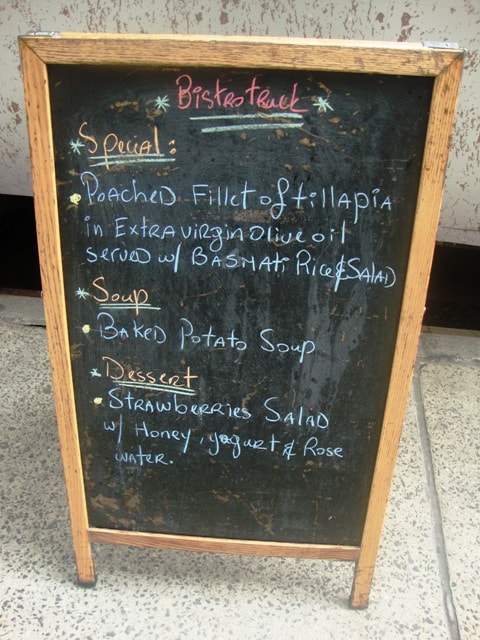 * Bistrotruck *
* Special:
• Poached Fillet of tillapia
in Extra virgin olive oil
served w/ Basmati Rice & Salad
* Soup
• Baked Potato Soup
* Dessert
• Strawberries Salad
w/ Honey, yogurt & Rose
water.